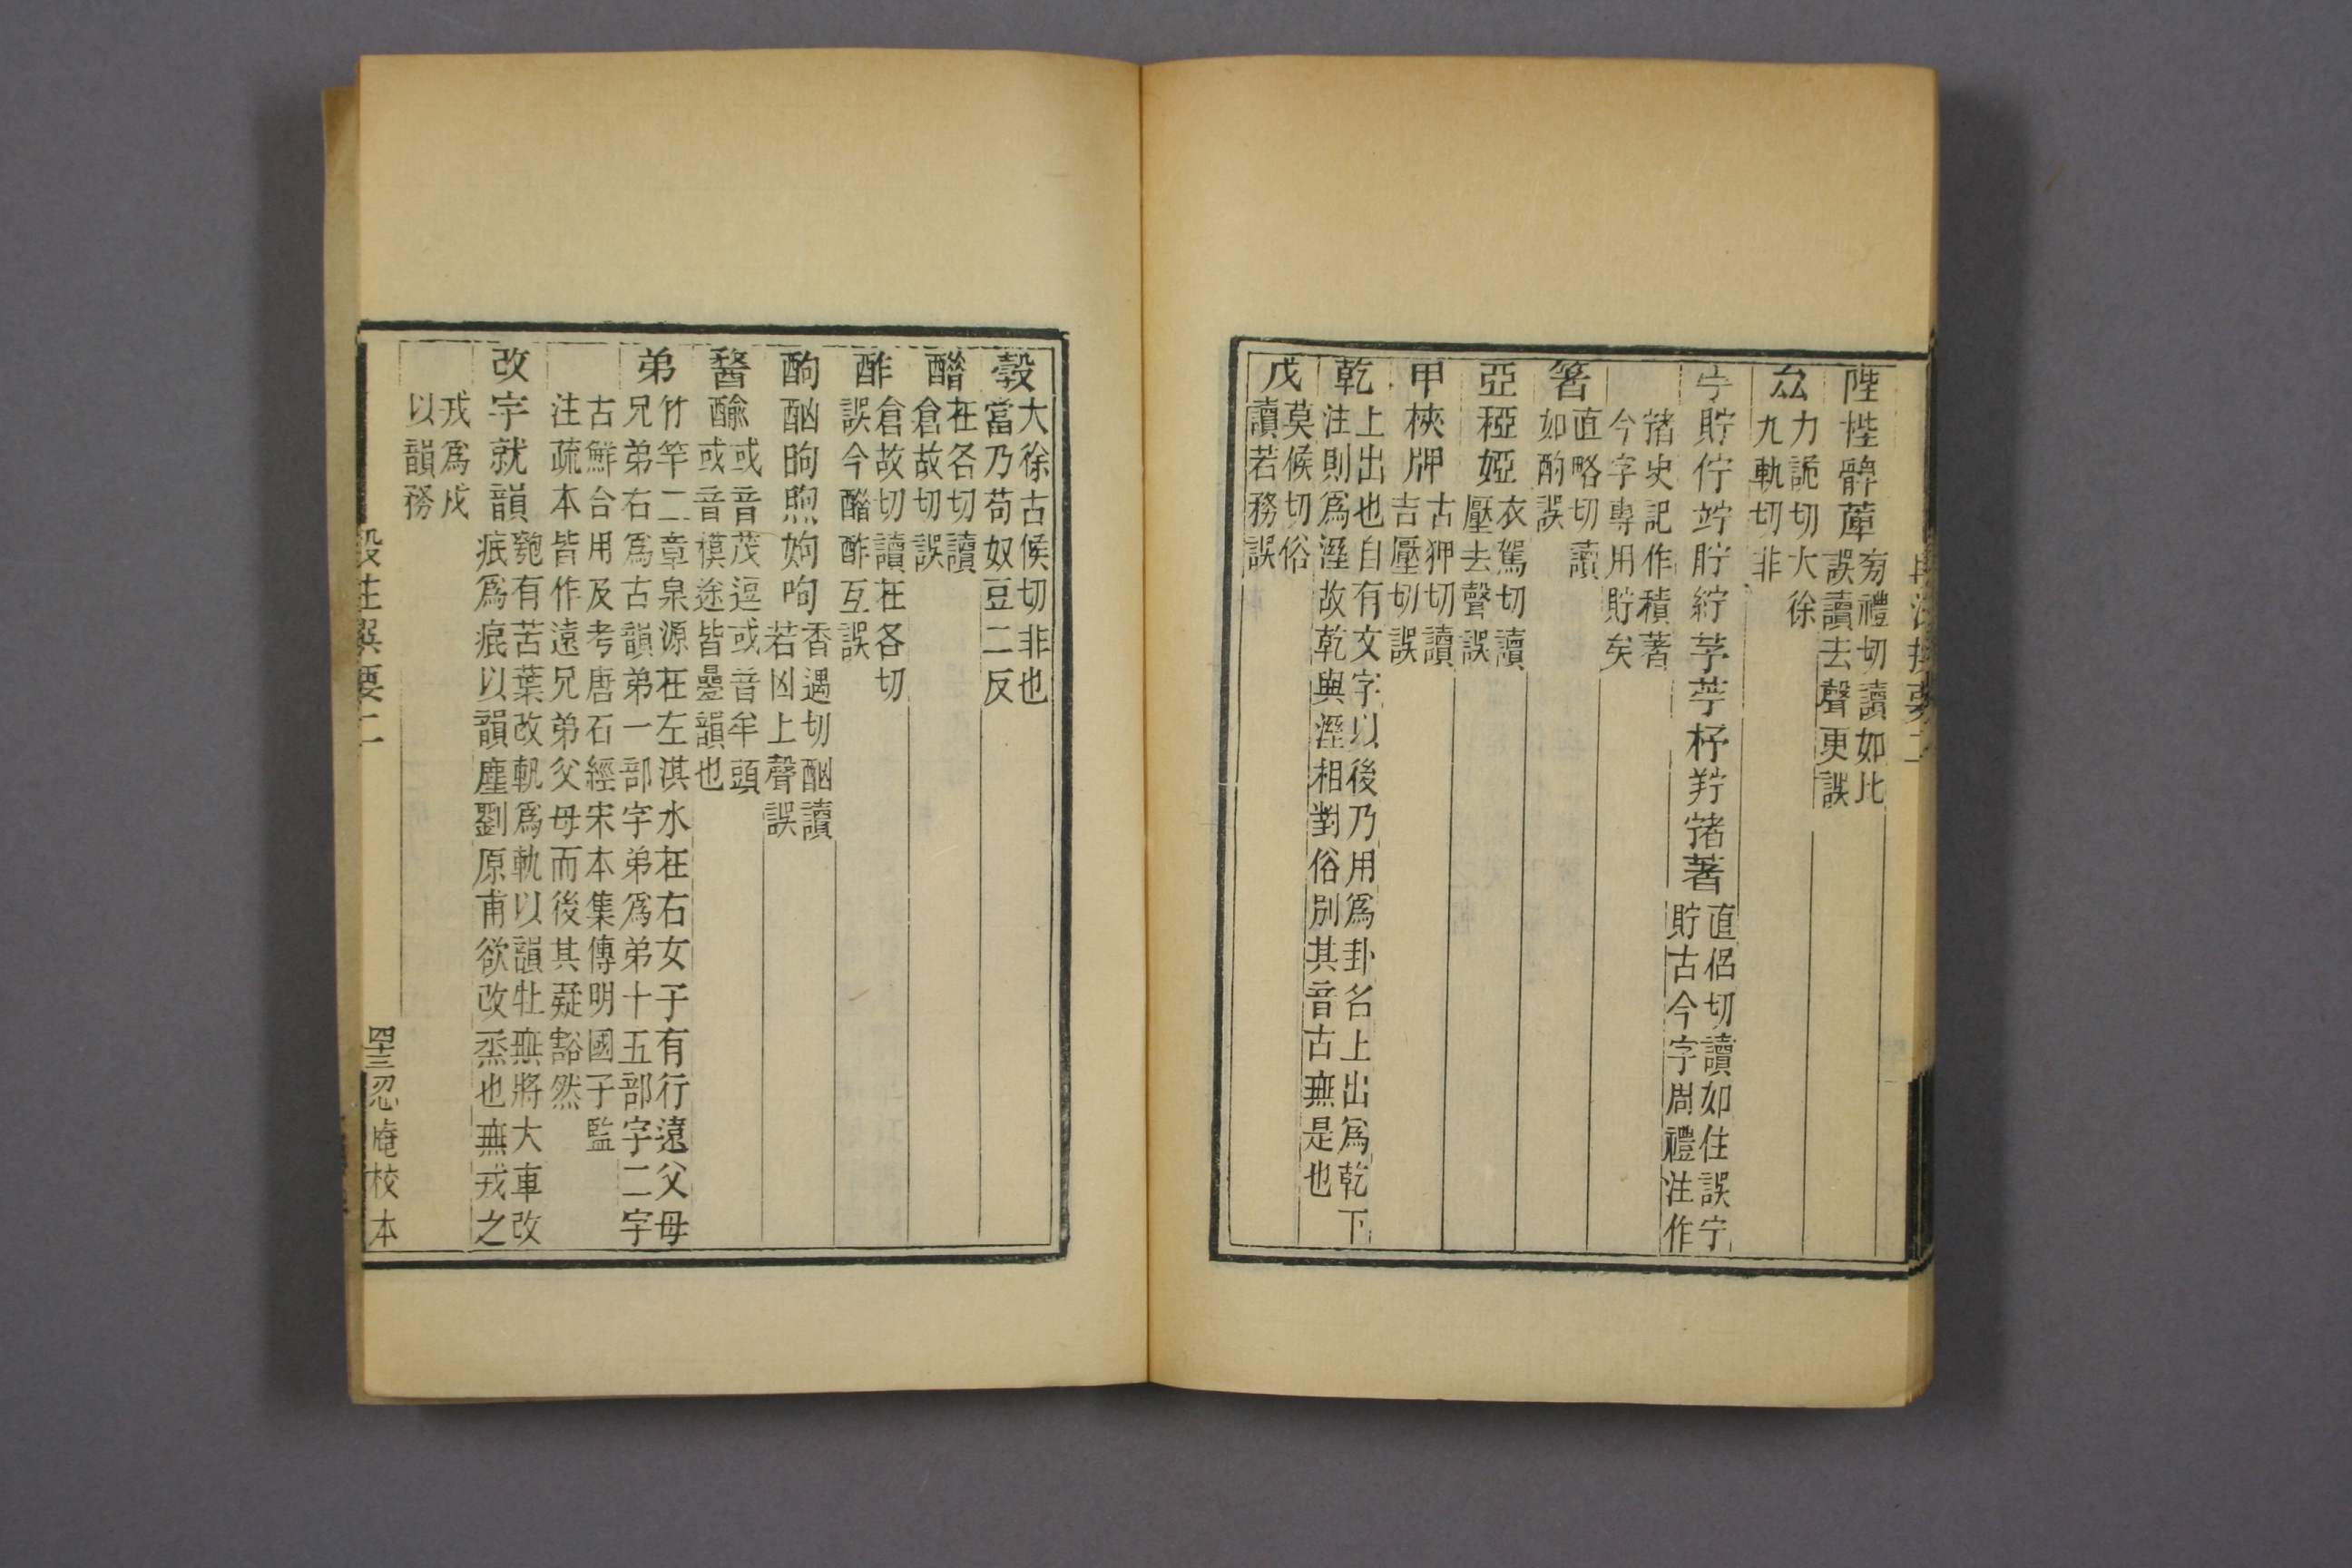 陛梐髀萆 㫄禮切讀如比
誤讀去聲更誤
厽 力詭切大徐
九軌切非
宁貯佇竚貯紵芧苧杼羜㿾著 直侶切讀如住誤宁
貯古今字周禮注作
㿾史記作積著
今字專用貯矣
箸 直略切讀
如酌誤
亞稏婭 衣駕切讀
壓去聲誤
甲梜牊 古狎切讀
吉壓切誤
乾 上出也自有文字以後乃用爲卦名上出爲乾下
注則爲溼故乾與溼相對俗別其音古無是也
戊 莫候切俗
讀若務誤
㝅 大徐古候切非也
當乃苟奴豆二反
醋 在各切讀
倉故切誤
酢 倉故切讀在各切
誤今醋酢互誤
酌酗昫煦姁呴 香遇切酗讀
若凶上聲誤
䤅䤄 或音茂逗或音牟頭
或音模途皆疊韻也
弟 竹竿二章泉源在左淇水在右女子有行遠父母
兄弟右爲古韻弟一部字弟爲弟十五部字二字
古鮮合用及考唐石經宋本集傳明國子監
注疏本皆作遠兄弟父母而後其疑豁然
改字就韻 匏有苦葉改軓爲軌以韻牡無將大車改
疧爲痕以韻塵劉原甫欲改烝也無戎之
戎爲戍
以韻務
段注撰要二
四十三
忍庵校本